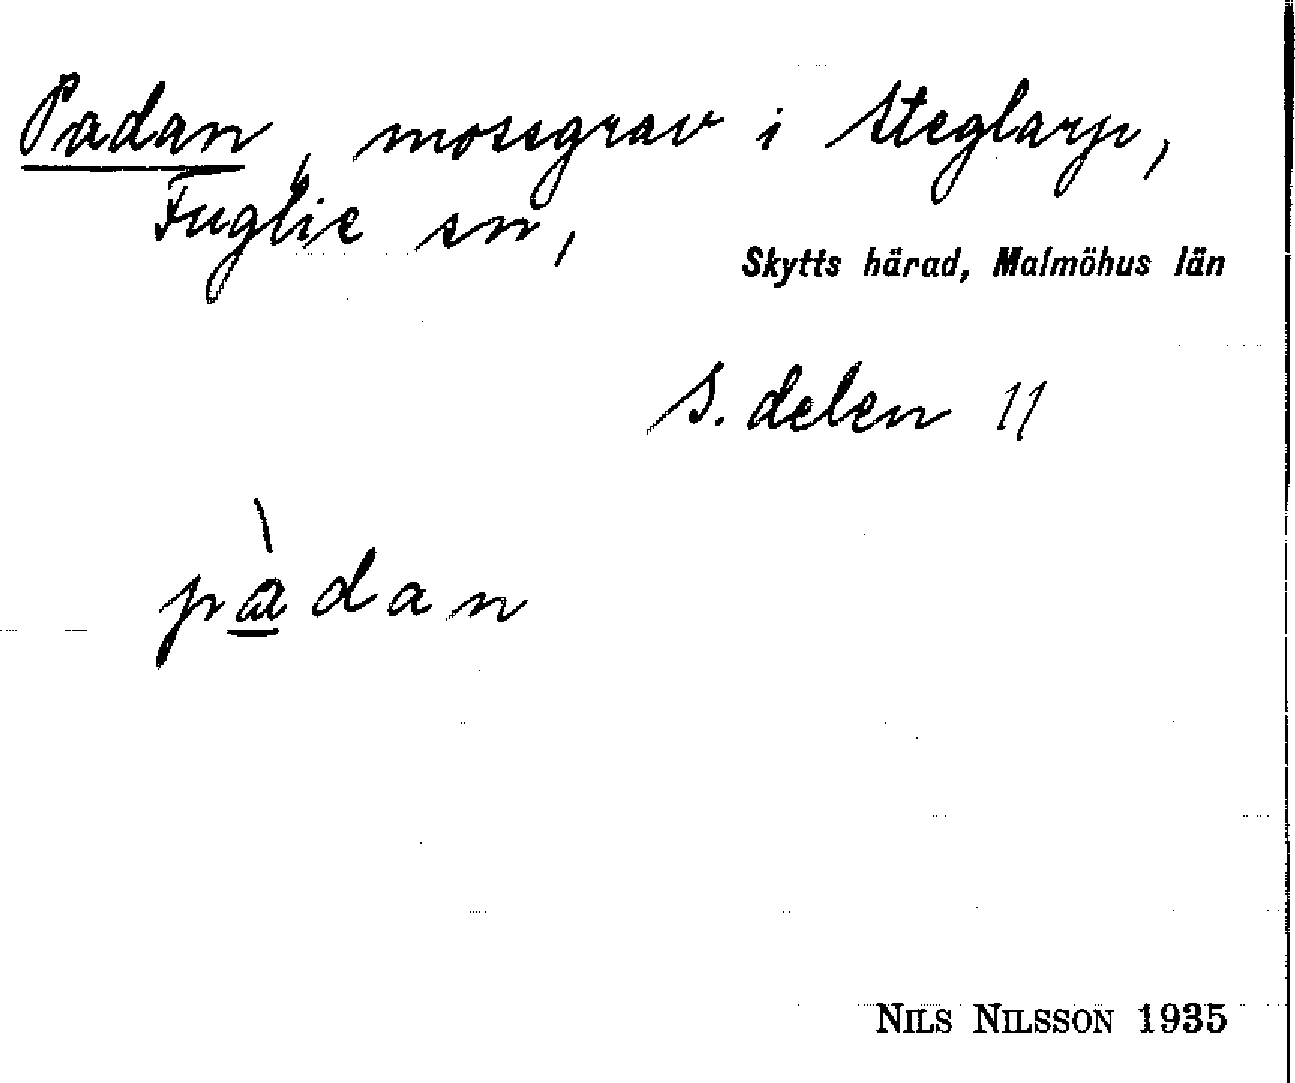 Padan, mossgrav i Steglarp,
Fuglie sn,
Skytts härad, Malmöhus län
S. delen 11
pàdan
NILS NILSSON 1935